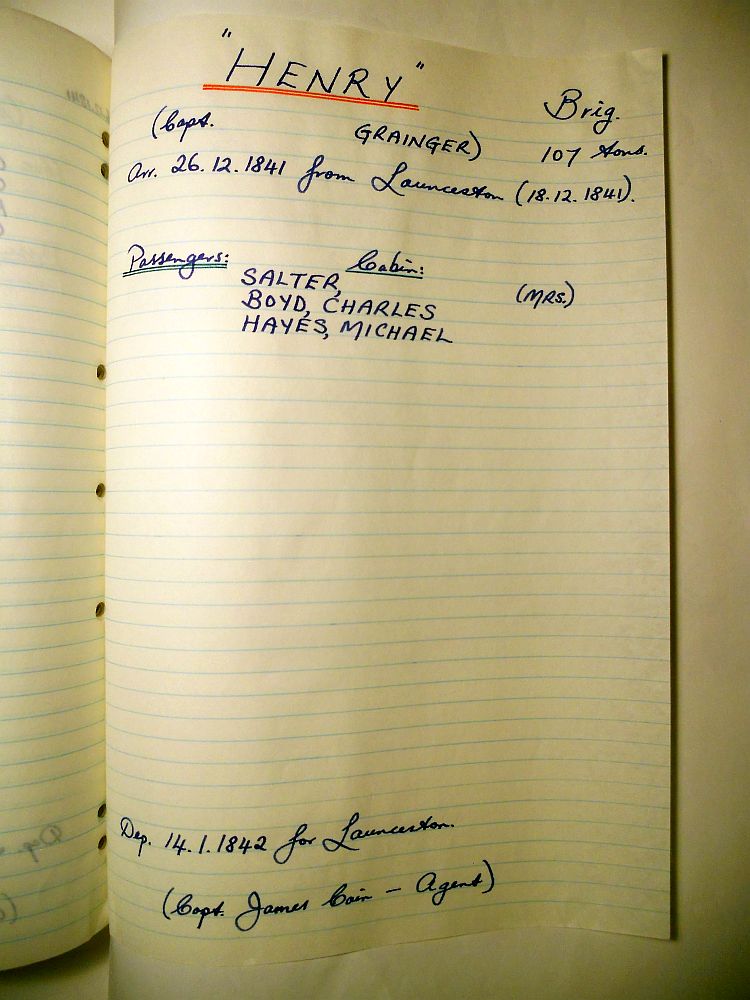 "HENRY"
Brig.
(Capt. GRAINGER) 107 tons.
Arr. 26.12.1841 from Launceston (18.12.1841).
Passengers: Cabin:
SALTER, (MRS.)
BOYD, CHARLES
HAYES, MICHAEL
Dep. 14.1.1842 for Launceston.
(Capt. James Cain - Agent)